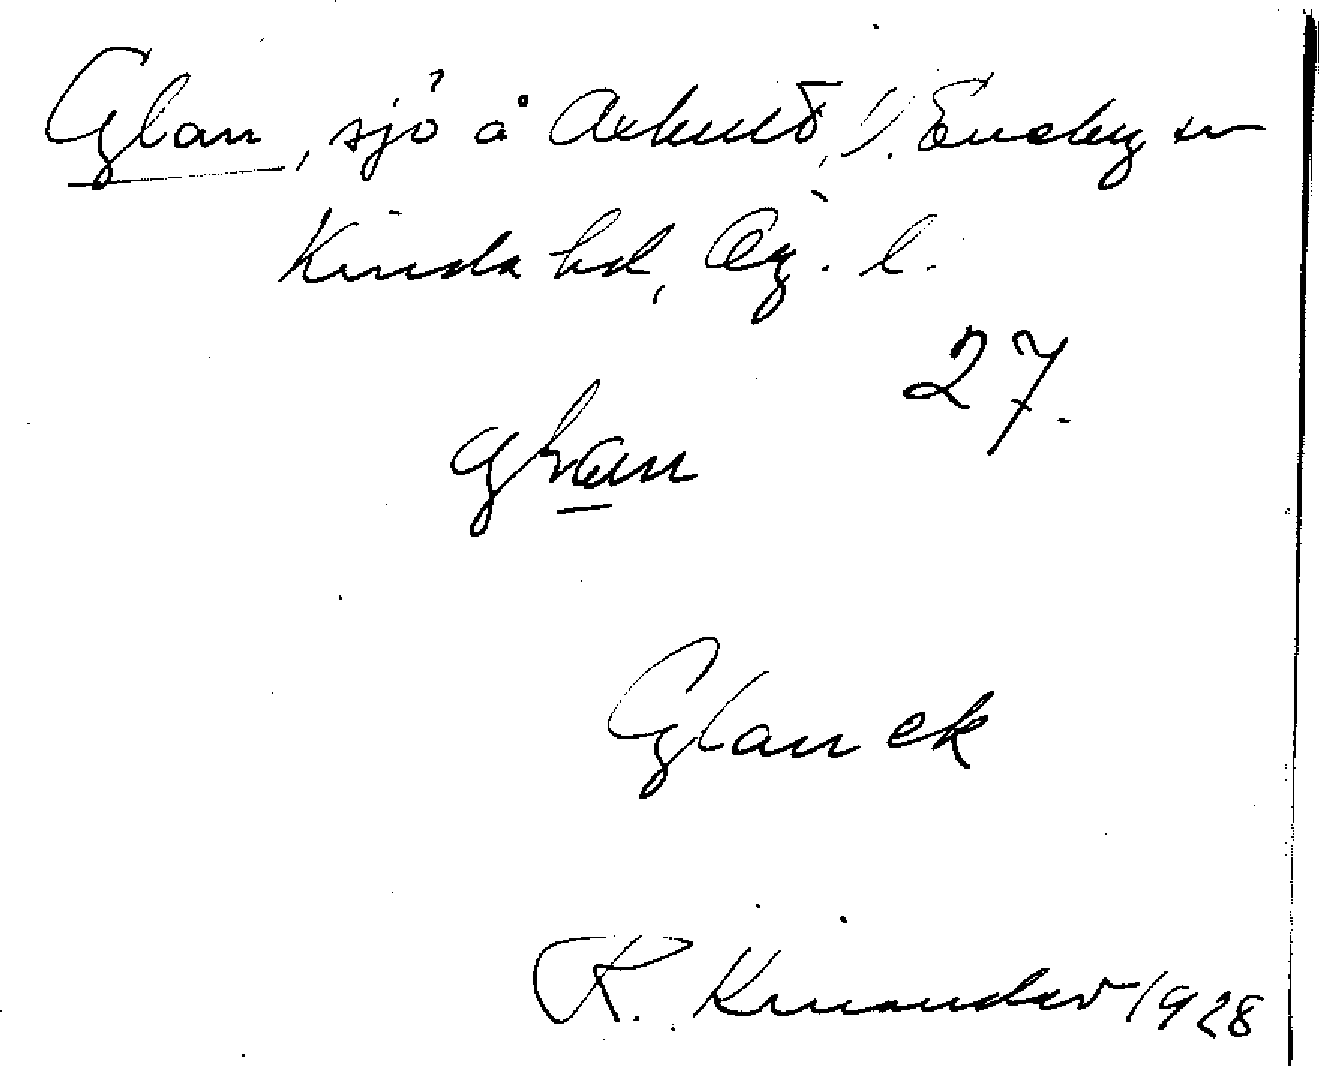 Glan, sjö å Askult, V. Eneby sn
Kinda hd, Ög. l.
27.
glan
Glan ek
K. Kinander 1928